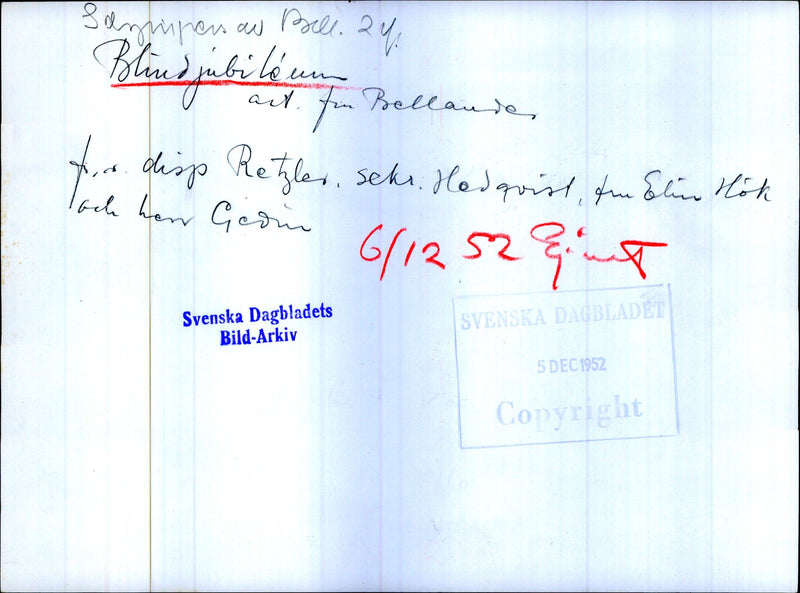 av Bell. 2 sp.
Blindjubiléum
art. fru Bellander
fr. v. disp Retzler, sekr. Hedqvist, fru Elin Hök
och herr Gedin
6/12 52 Ej inf
Svenska Dagbladets
Bild-Arkiv
SVENSKA DAGBLADET
5 DEC 1952
Copyright